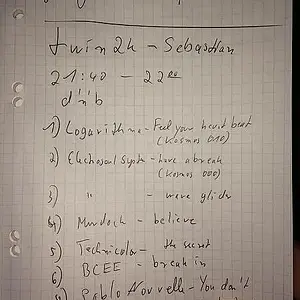 twin2k - Sebastian
21:40 - 22 00
d'n'b
1) Logarithma - Feel your heart beat
(Kosmos 010)
2) Electrosoul System - have a break
(Kosmos 000)
3) " - wave glider
4) Murdock - believe
5) Technicolor - the secret
6) BCEE - break in
Pablo Nouvelle - You don't